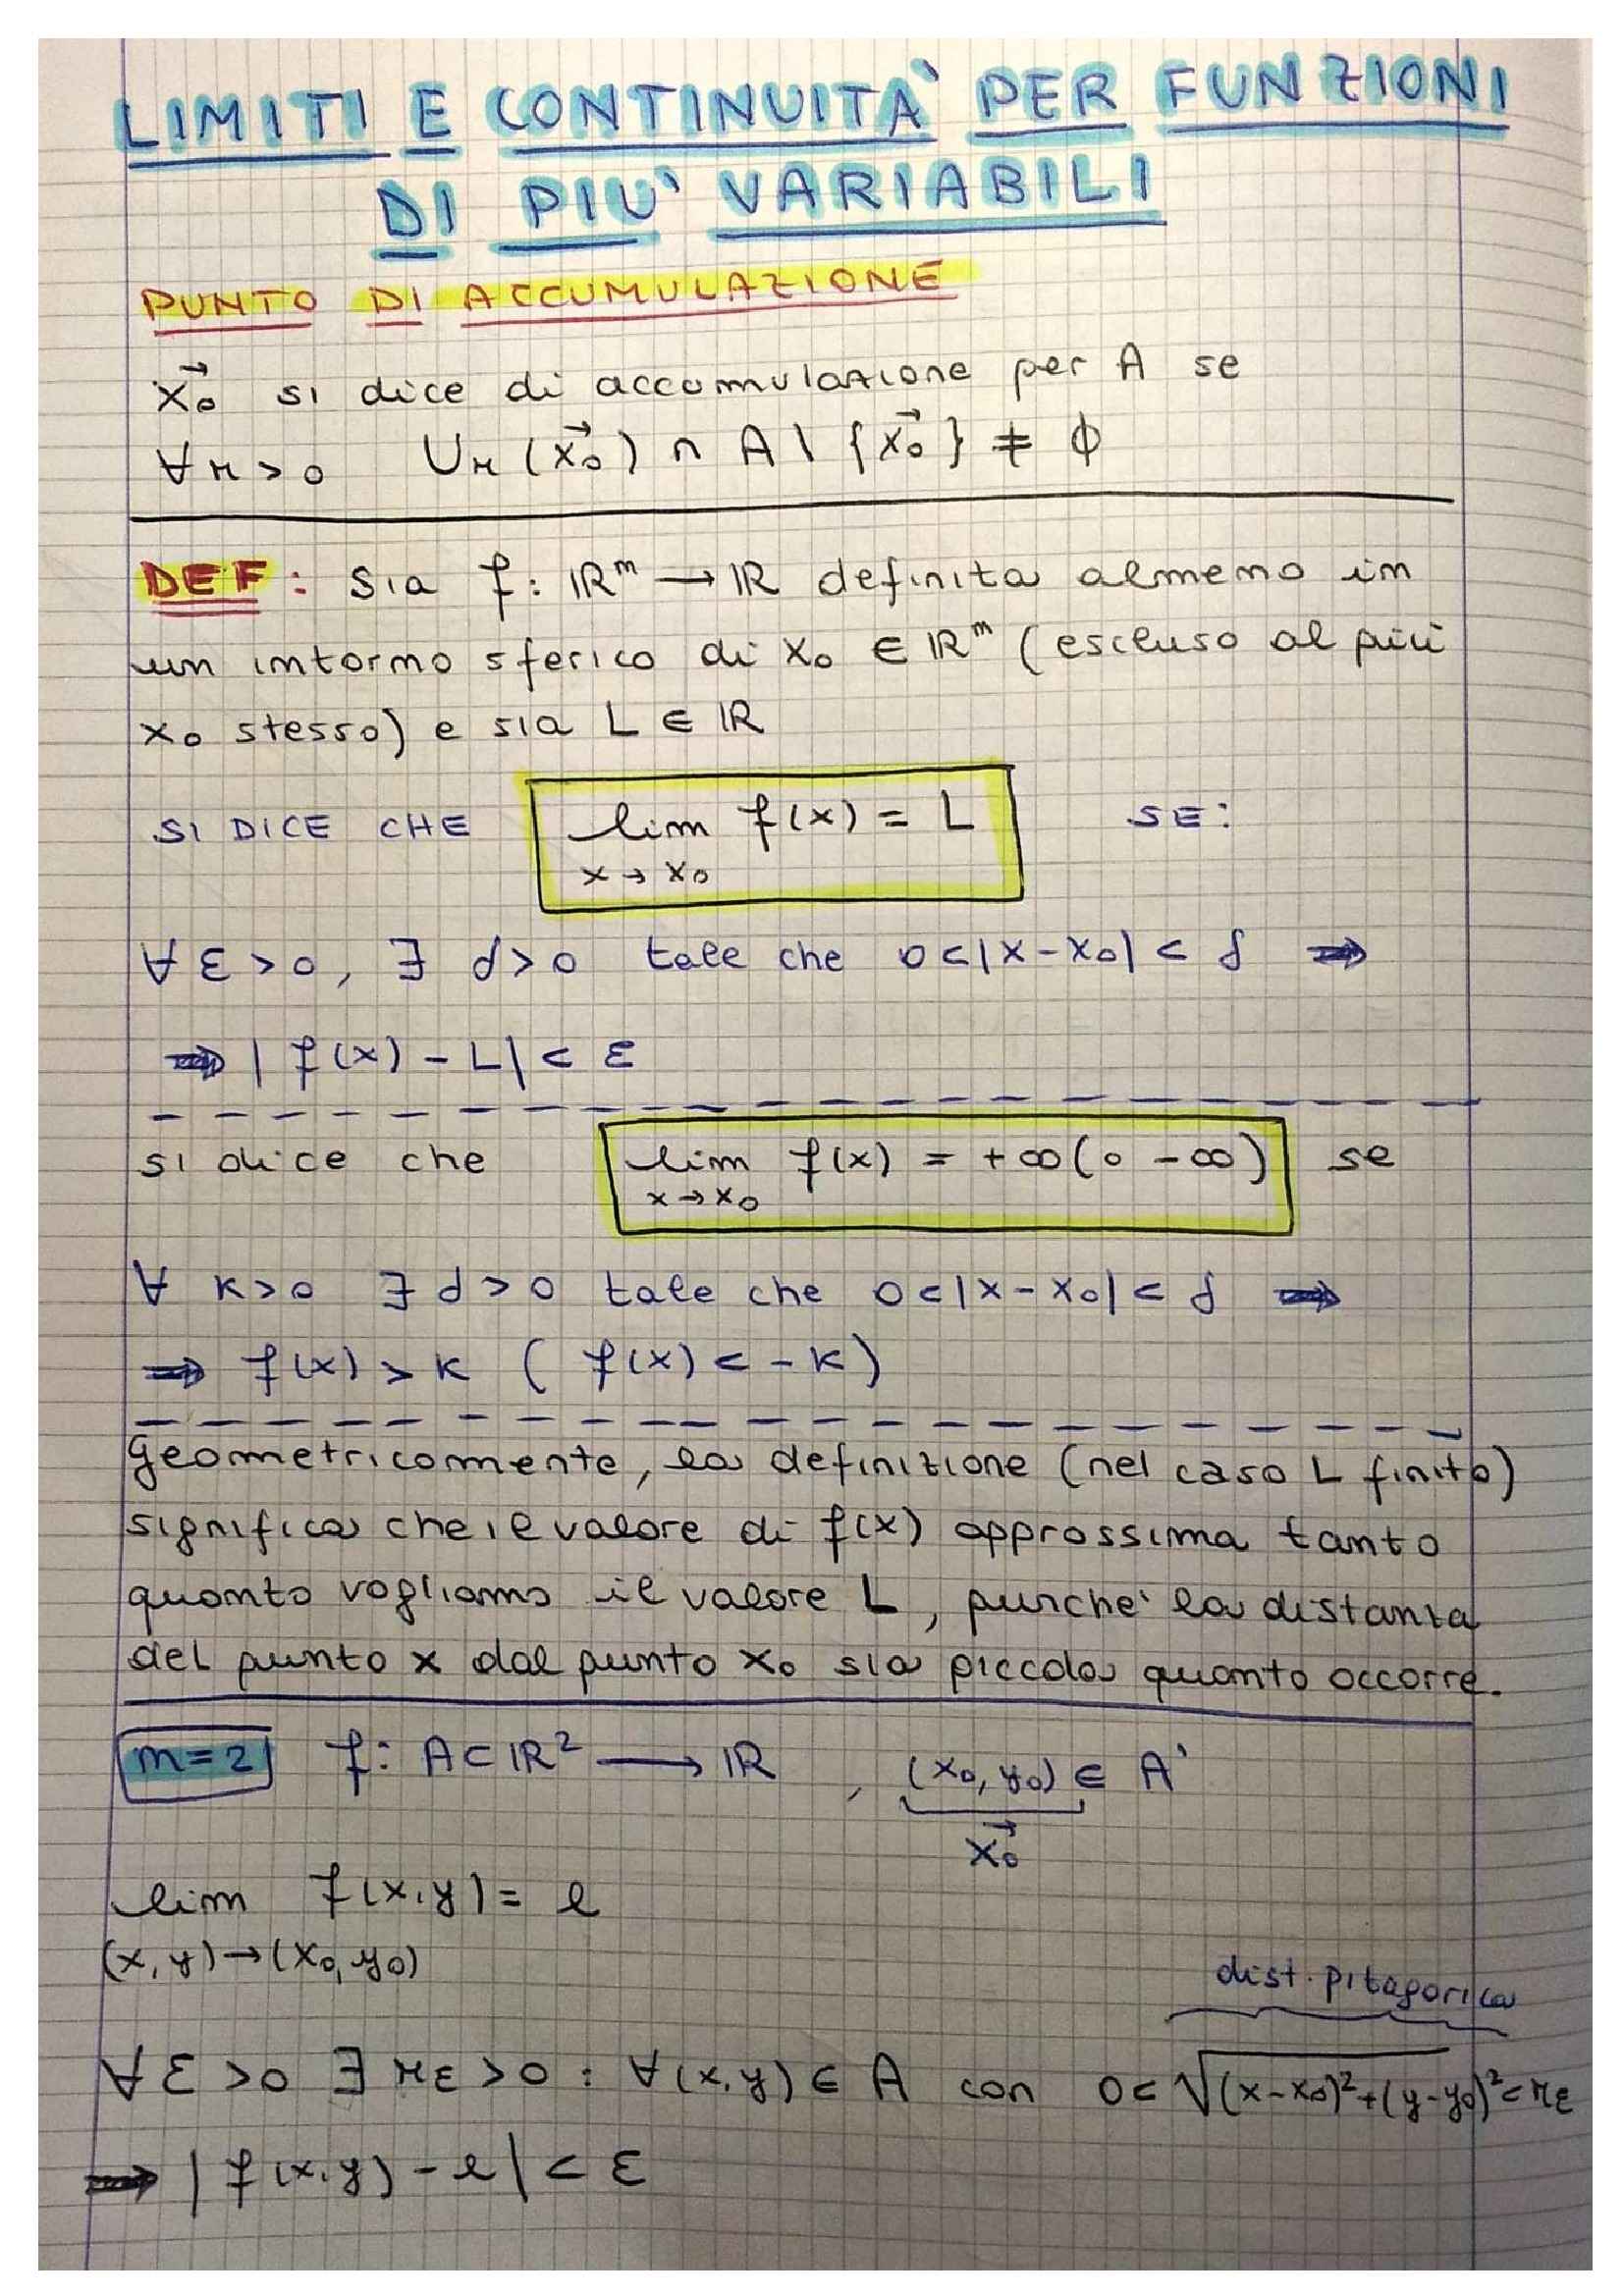 LIMITI E CONTINUITÀ PER FUNZIONI
DI PIU' VARIABILI
PUNTO DI ACCUMULAZIONE
x⃗₀ si dice di accumulazione per A se
∀r>0 Uᵣ(x⃗₀) ∩ A \ {x⃗₀} ≠ ∅
DEF: Sia f: ℝⁿ → ℝ definita almeno in
un intorno sferico di x₀ ∈ ℝⁿ (escluso al più
x₀ stesso) e sia L ∈ ℝ
SI DICE CHE lim f(x) = L SE:
x → x₀
∀ ε > 0, ∃ δ > 0 tale che 0<|x-x₀| < δ ⇒
⇒ | f(x) - L| < ε
si dice che lim f(x) = +∞ (o -∞) se
x → x₀
∀ K>0 ∃ δ > 0 tale che 0<|x-x₀| < δ ⇒
⇒ f(x) > K ( f(x) < -K)
Geometricamente, la definizione (nel caso L finito)
significa che il valore di f(x) approssima tanto
quanto vogliamo il valore L, purche' la distanza
del punto x dal punto x₀ sia piccola quanto occorre.
n=2 f: A⊂ℝ² → ℝ , (x₀, y₀) ∈ A'
x⃗₀
lim f(x,y) = l
(x,y)→(x₀,y₀)
dist. pitagorica
∀ε >0 ∃ r_ε >0 : ∀(x,y) ∈ A con 0< √(x-x₀)²+(y-y₀)² < r_ε
⇒ | f(x,y) - l | < ε